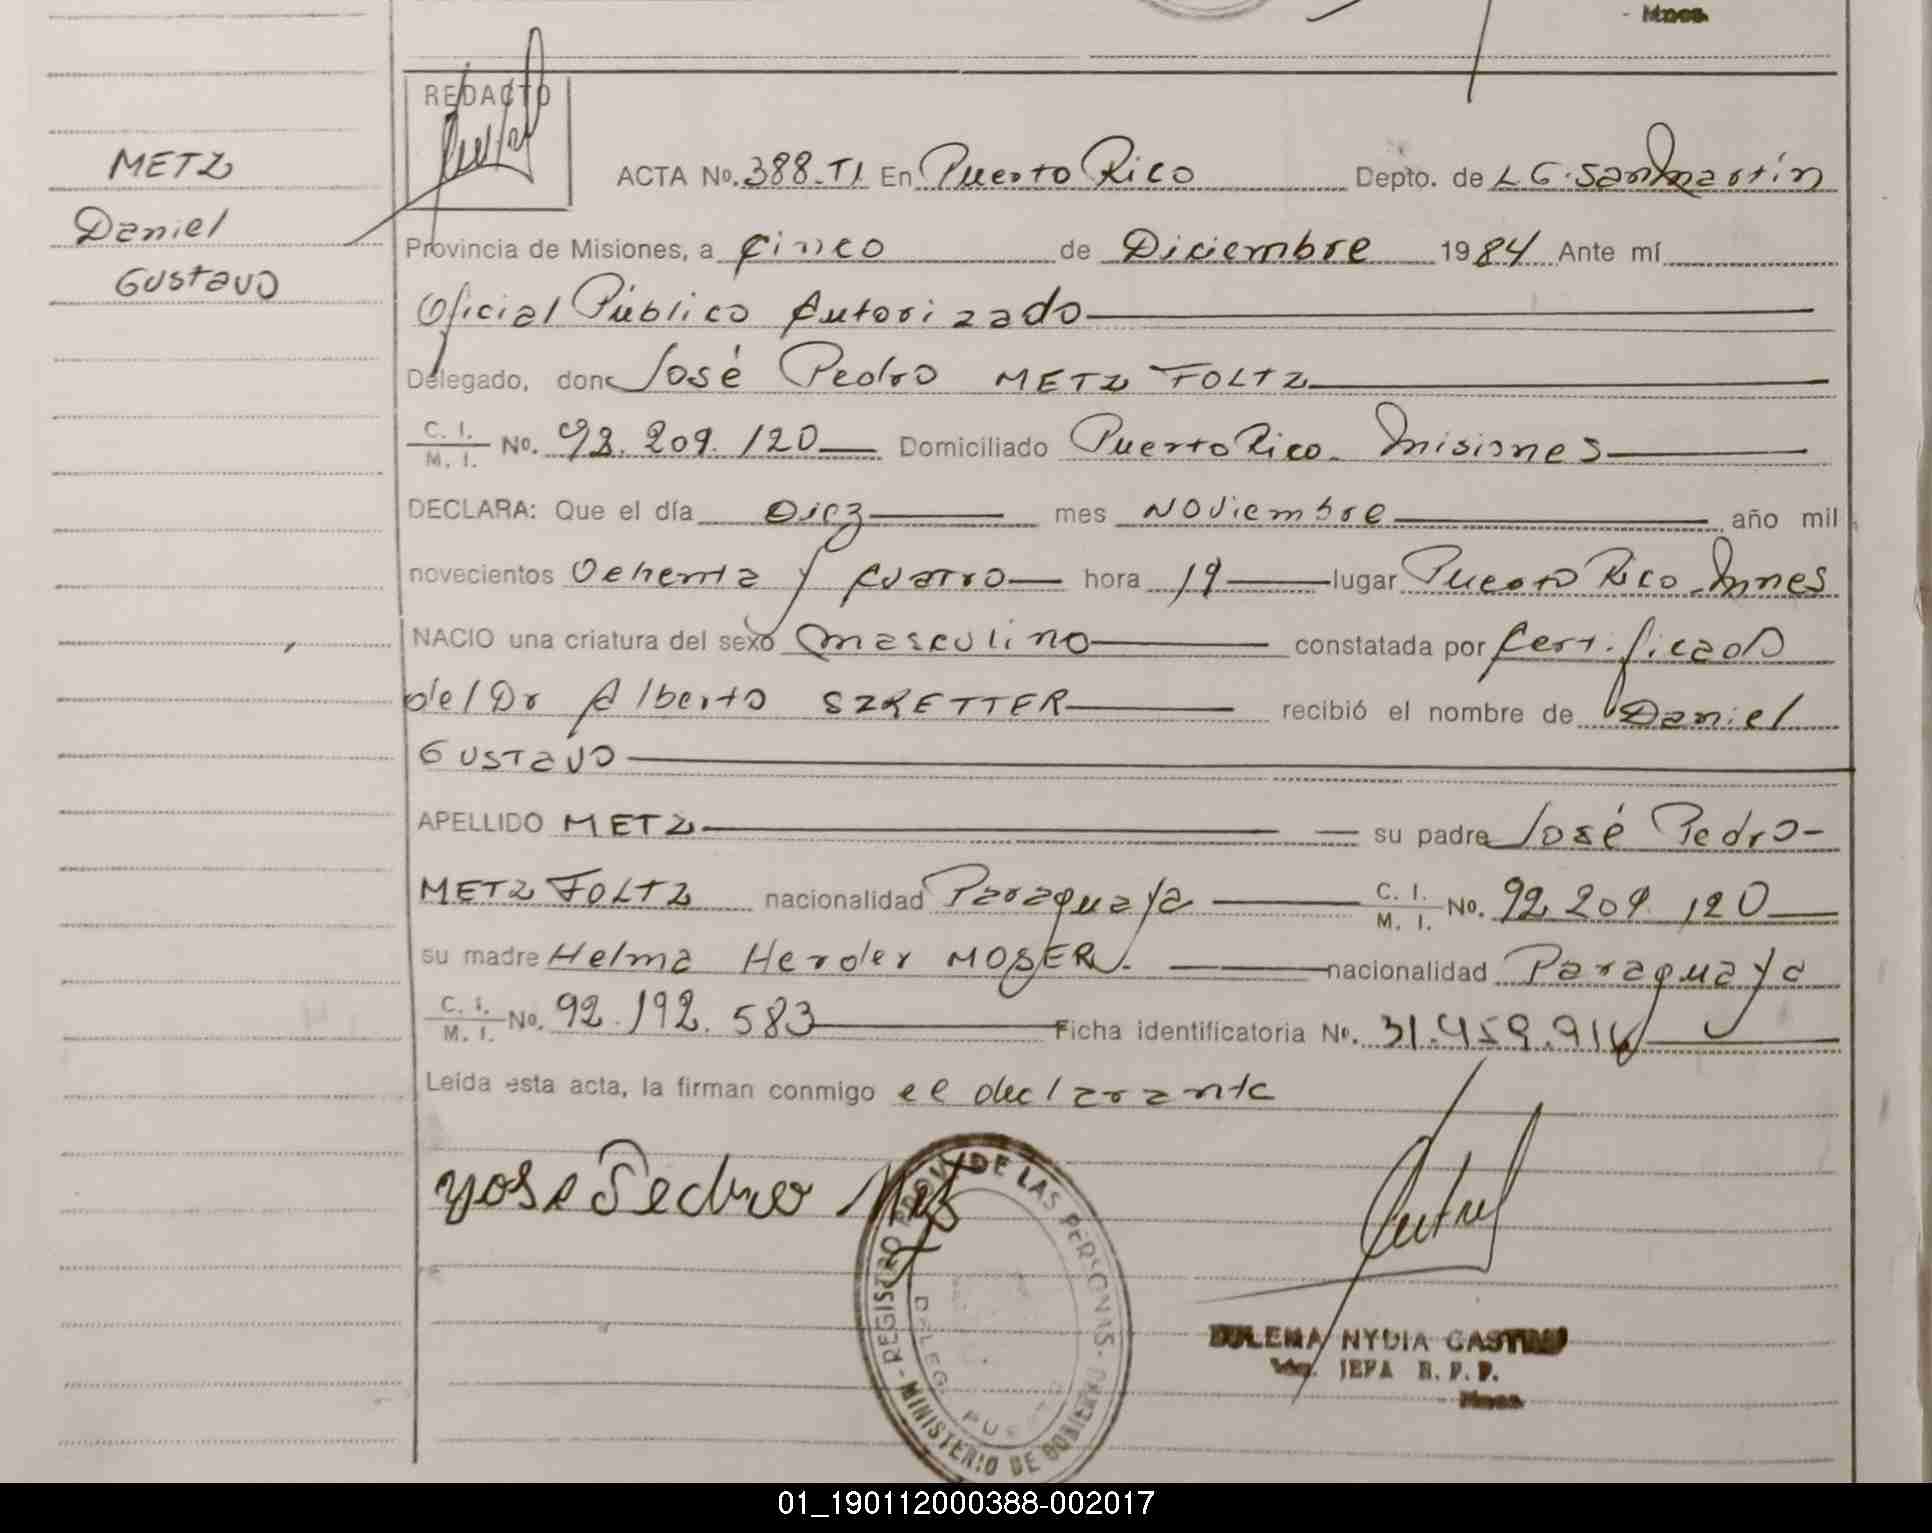 - Mnes.
REDACTO
METZ
Daniel
Gustavo
ACTA No. 388-T1 En Puerto Rico Depto. de L G. San Martín
Provincia de Misiones, a Cinco de Diciembre 1984 Ante mí
Oficial Público Autorizado
Delegado, don José Pedro METZ FOLTZ
C. I. / M. I. No. 92.209.120 Domiciliado Puerto Rico - Misiones
DECLARA: Que el día Diez mes Noviembre año mil
novecientos Ochenta y Cuatro hora 19 lugar Puerto Rico - Mnes
NACIO una criatura del sexo Masculino constatada por Certificado
del Dr Alberto SZRETTER recibió el nombre de Daniel
Gustavo
APELLIDO METZ su padre José Pedro
METZ FOLTZ nacionalidad Paraguaya C. I. / M. I. No. 92 209 120
su madre Helma Herder MOSER nacionalidad Paraguaya
C. I. / M. I. No. 92.192.583 Ficha identificatoria No. 31.459.916
Leída esta acta, la firman conmigo el declarante
Yose Pedro Metz
REGISTRO PROV. DE LAS PERSONAS - MINISTERIO DE GOBIERNO
DELEG. PUERTO
ZULEMA NYDIA CASTILLO
JEFA R. P. P.
- Mnes.
01_190112000388-002017